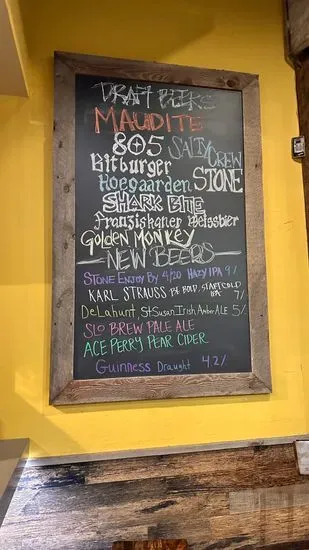 DRAFT BEERS
MAUDITE
805 SALTY CREW
Bitburger
Hoegaarden STONE
SHARK BITE
Franziskaner Weissbier
Golden Monkey
NEW BEERS
STONE ENJOY By 4/20 HAZY IPA 9%
KARL STRAUSS BE BOLD, START COLD IPA 7%
DeLahunt, St Susan Irish Amber ALE 5%
SLO BREW PALE ALE
ACE PERRY PEAR CIDER
Guinness Draught 4.2%